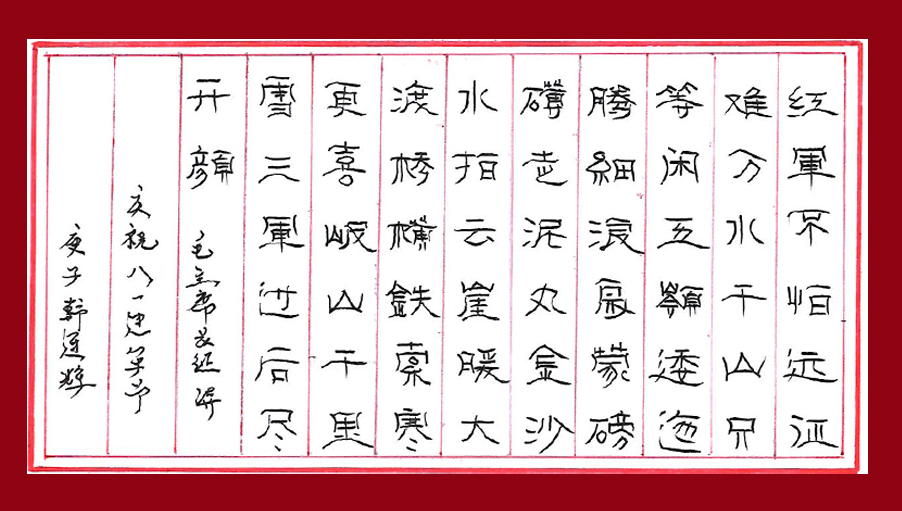 红軍不怕远征
难万水千山只
等闲五嶺逶迤
腾細浪烏蒙磅
礴走泥丸金沙
水拍云崖暖大
渡桥横鉄索寒
更喜岷山千里
雪三軍过后尽
开顔 毛主席长征诗
庆祝八一建军节
庚子